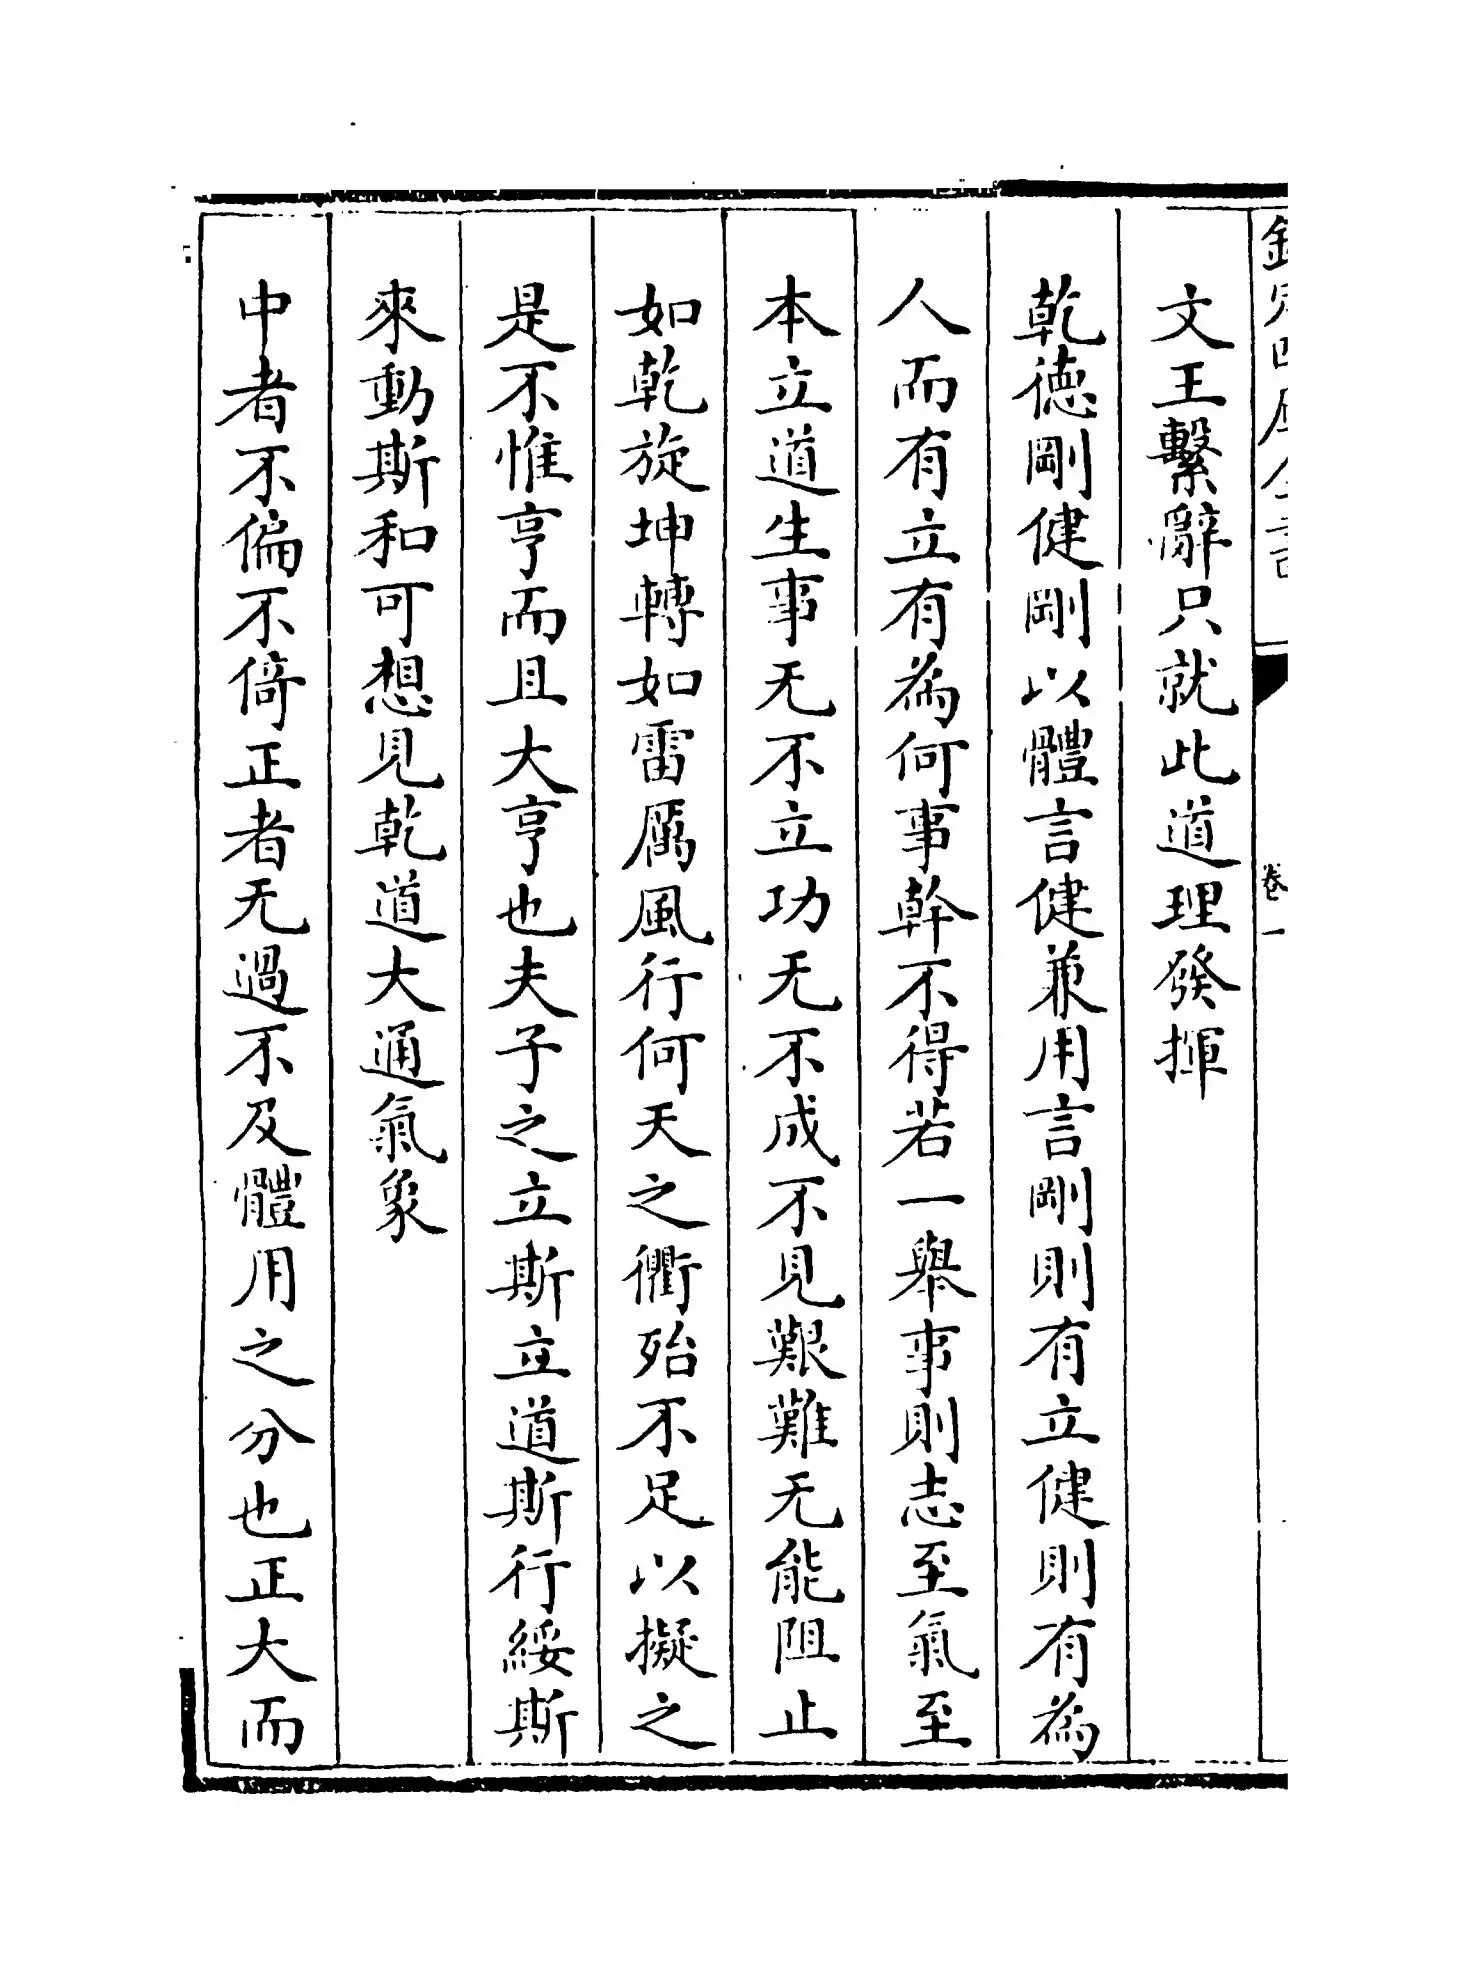 欽定四庫全書
卷一
文王繫辭只就此道理發揮
乾德剛健剛以體言健兼用言剛則有立健則有為
人而有立有為何事幹不得若一舉事則志至氣至
本立道生事无不立功无不成不見艱難无能阻止
如乾旋坤轉如雷厲風行何天之衢殆不足以擬之
是不惟亨而且大亨也夫子之立斯立道斯行綏斯
來動斯和可想見乾道大通氣象
中者不偏不倚正者无過不及體用之分也正大而